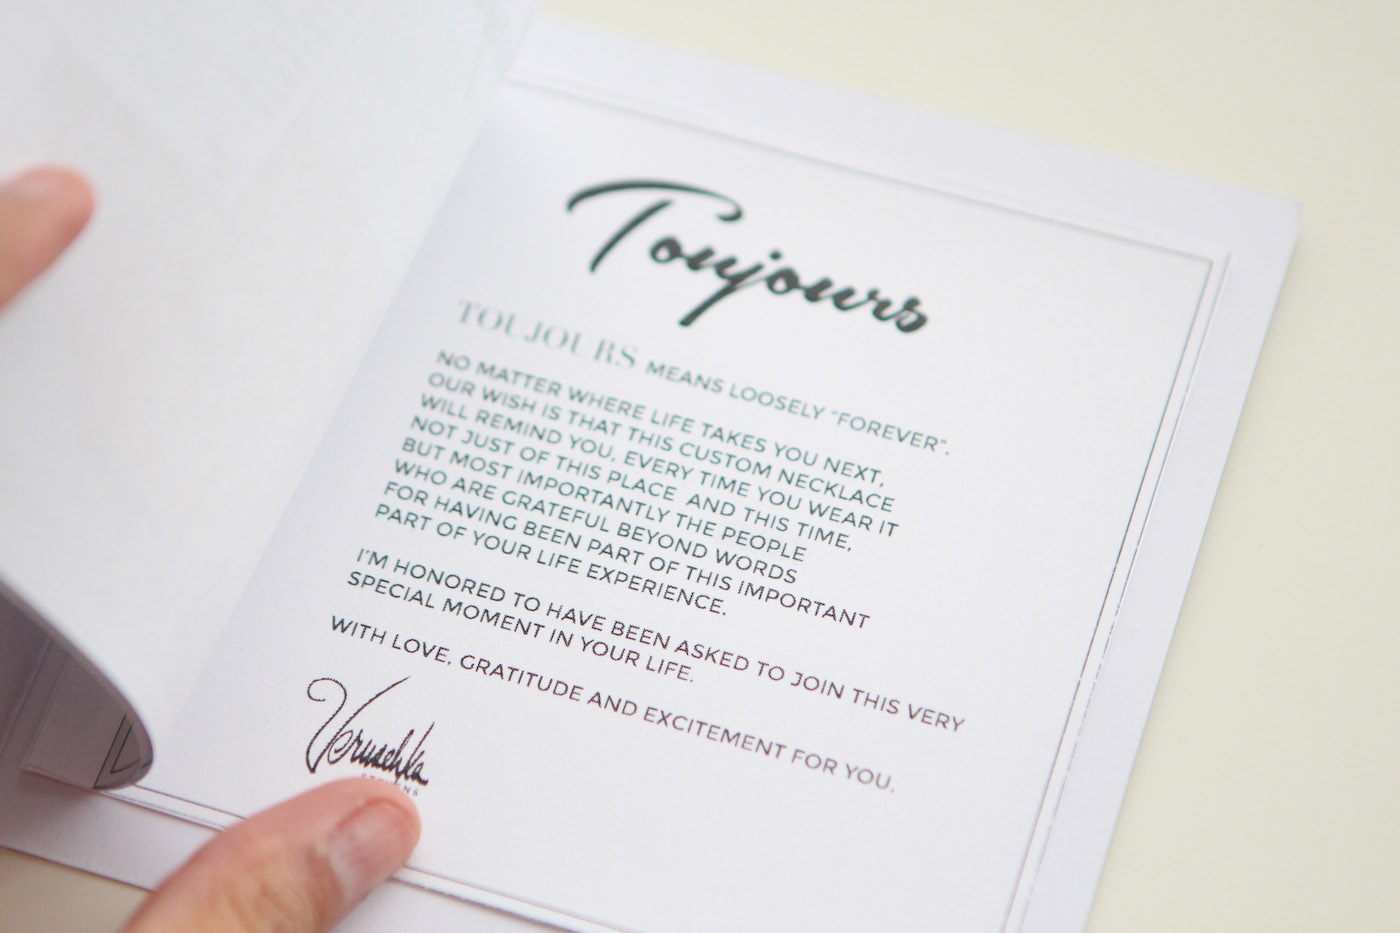 Toujours
TOUJOURS MEANS LOOSELY "FOREVER".
NO MATTER WHERE LIFE TAKES YOU NEXT,
OUR WISH IS THAT THIS CUSTOM NECKLACE
WILL REMIND YOU, EVERY TIME YOU WEAR IT
NOT JUST OF THIS PLACE AND THIS TIME,
BUT MOST IMPORTANTLY THE PEOPLE
WHO ARE GRATEFUL BEYOND WORDS
FOR HAVING BEEN PART OF THIS IMPORTANT
PART OF YOUR LIFE EXPERIENCE.
I'M HONORED TO HAVE BEEN ASKED TO JOIN THIS VERY
SPECIAL MOMENT IN YOUR LIFE.
WITH LOVE, GRATITUDE AND EXCITEMENT FOR YOU.
Veruschka
STEVENS